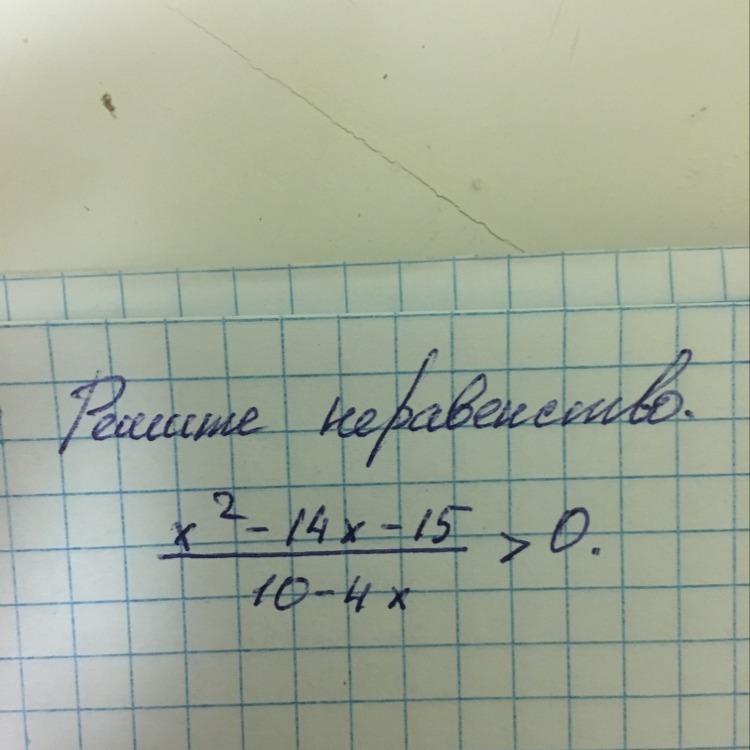 Решите неравенство.
x² - 14x - 15
10 - 4x
> 0.